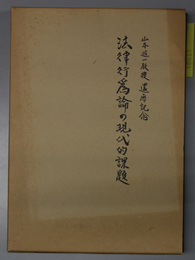 山本進一教授還暦記念
法律行為論の現代的課題